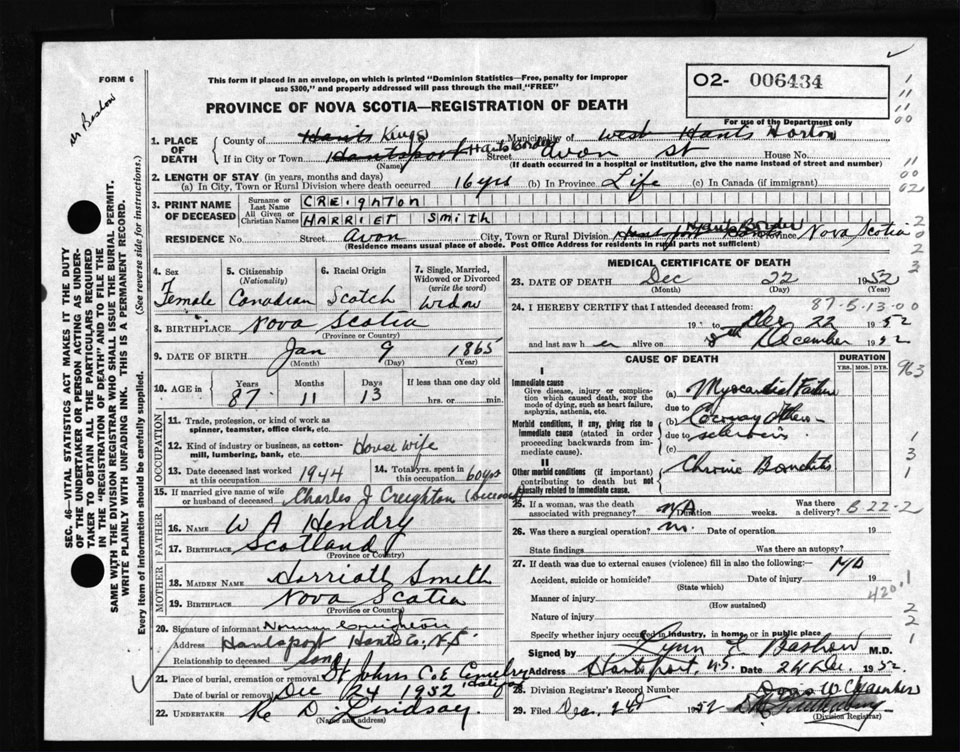 FORM 6
Dr Bashow
This form if placed in an envelope, on which is printed "Dominion Statistics—Free, penalty for improper
use $300," and properly addressed will pass through the mail "FREE"
PROVINCE OF NOVA SCOTIA—REGISTRATION OF DEATH
02- 006434
For use of the Department only
1. PLACE OF DEATH
County of Hants Kings Municipality of West Hants Horton
If in City or Town Hantsport Hants Border Street Avon St House No.
(Name) (If death occurred in a hospital or institution, give the name instead of street and number)
2. LENGTH OF STAY (in years, months and days)
(a) In City, Town or Rural Division where death occurred 16 yrs (b) In Province Life (c) In Canada (if immigrant)
3. PRINT NAME OF DECEASED
Surname or Last Name CREIGHTON
All Given or Christian Names HARRIET Smith
RESIDENCE No. Street Avon City, Town or Rural Division Hantsport Hants Border Province Nova Scotia
(Residence means usual place of abode. Post Office Address for residents in rural parts not sufficient)
4. Sex Female
5. Citizenship (Nationality) Canadian
6. Racial Origin Scotch
7. Single, Married, Widowed or Divorced (write the word) Widow
8. BIRTHPLACE Nova Scotia
(Province or Country)
9. DATE OF BIRTH Jan 9 1865
(Month) (Day) (Year)
10. AGE in Years Months Days If less than one day old
87 11 13 hrs. or min.
OCCUPATION
11. Trade, profession, or kind of work as spinner, teamster, office clerk, etc.
12. Kind of industry or business, as cotton-mill, lumbering, bank, etc. House wife
13. Date deceased last worked at this occupation 1944 14. Total yrs. spent in this occupation 60 yrs
15. If married give name of wife or husband of deceased Charles J Creighton (Deceased)
FATHER
16. NAME W A Hendry
17. BIRTHPLACE Scotland
(Province or Country)
MOTHER
18. MAIDEN NAME Harriott Smith
19. BIRTHPLACE Nova Scotia
(Province or Country)
20. Signature of informant Norman Creighton
Address Hantsport Hants Co, N.S.
Relationship to deceased son
21. Place of burial, cremation or removal St Johns C. E Cemetry Halifax
Date of burial or removal Dec 24 1952
22. Undertaker Re D. Lindsay
(Name and address)
MEDICAL CERTIFICATE OF DEATH
23. DATE OF DEATH Dec 22 1952
(Month) (Day) (Year)
24. I HEREBY CERTIFY that I attended deceased from: 87-5-13-00
19 to Dec 22 1952
and last saw her alive on December 1952
CAUSE OF DEATH
DURATION
YRS. MOS. DYS.
I
Immediate cause
Give disease, injury or complication which caused death, not the mode of dying, such as heart failure, asphyxia, asthenia, etc.
(a) Myocardial Failure
due to
Morbid conditions, if any, giving rise to immediate cause (stated in order proceeding backwards from immediate cause).
(b) Coronary Athero
due to sclerosis
(c)
II
Other morbid conditions (if important) contributing to death but not causally related to immediate cause.
Chronic Bronchitis
25. If a woman, was the death associated with pregnancy? No Duration weeks. Was there a delivery? B.22-2
26. Was there a surgical operation? no. Date of operation 19
State findings Was there an autopsy?
27. If death was due to external causes (violence) fill in also the following:— No
Accident, suicide or homicide? Date of injury 19
(State which)
Manner of injury 420.1
(How sustained)
Nature of injury
Specify whether injury occurred in industry, in home or in public place
Signed by Lynn E Bashow M.D.
Address Hantsport, N.S. Date 24 Dec. 1952
28. Division Registrar's Record Number
Doris W Chambers
29. Filed Dec. 24 1952
(Division Registrar)
SEC. 46—VITAL STATISTICS ACT MAKES IT THE DUTY
OF THE UNDERTAKER OR PERSON ACTING AS UNDER-
TAKER TO OBTAIN ALL THE PARTICULARS REQUIRED
IN THE "REGISTRATION OF DEATH" AND TO FILE THE
SAME WITH THE DIVISION REGISTRAR WHO SHALL ISSUE THE BURIAL PERMIT.
WRITE PLAINLY WITH UNFADING INK. THIS IS A PERMANENT RECORD.
Every item of information should be carefully supplied. (See reverse side for instructions.)
963